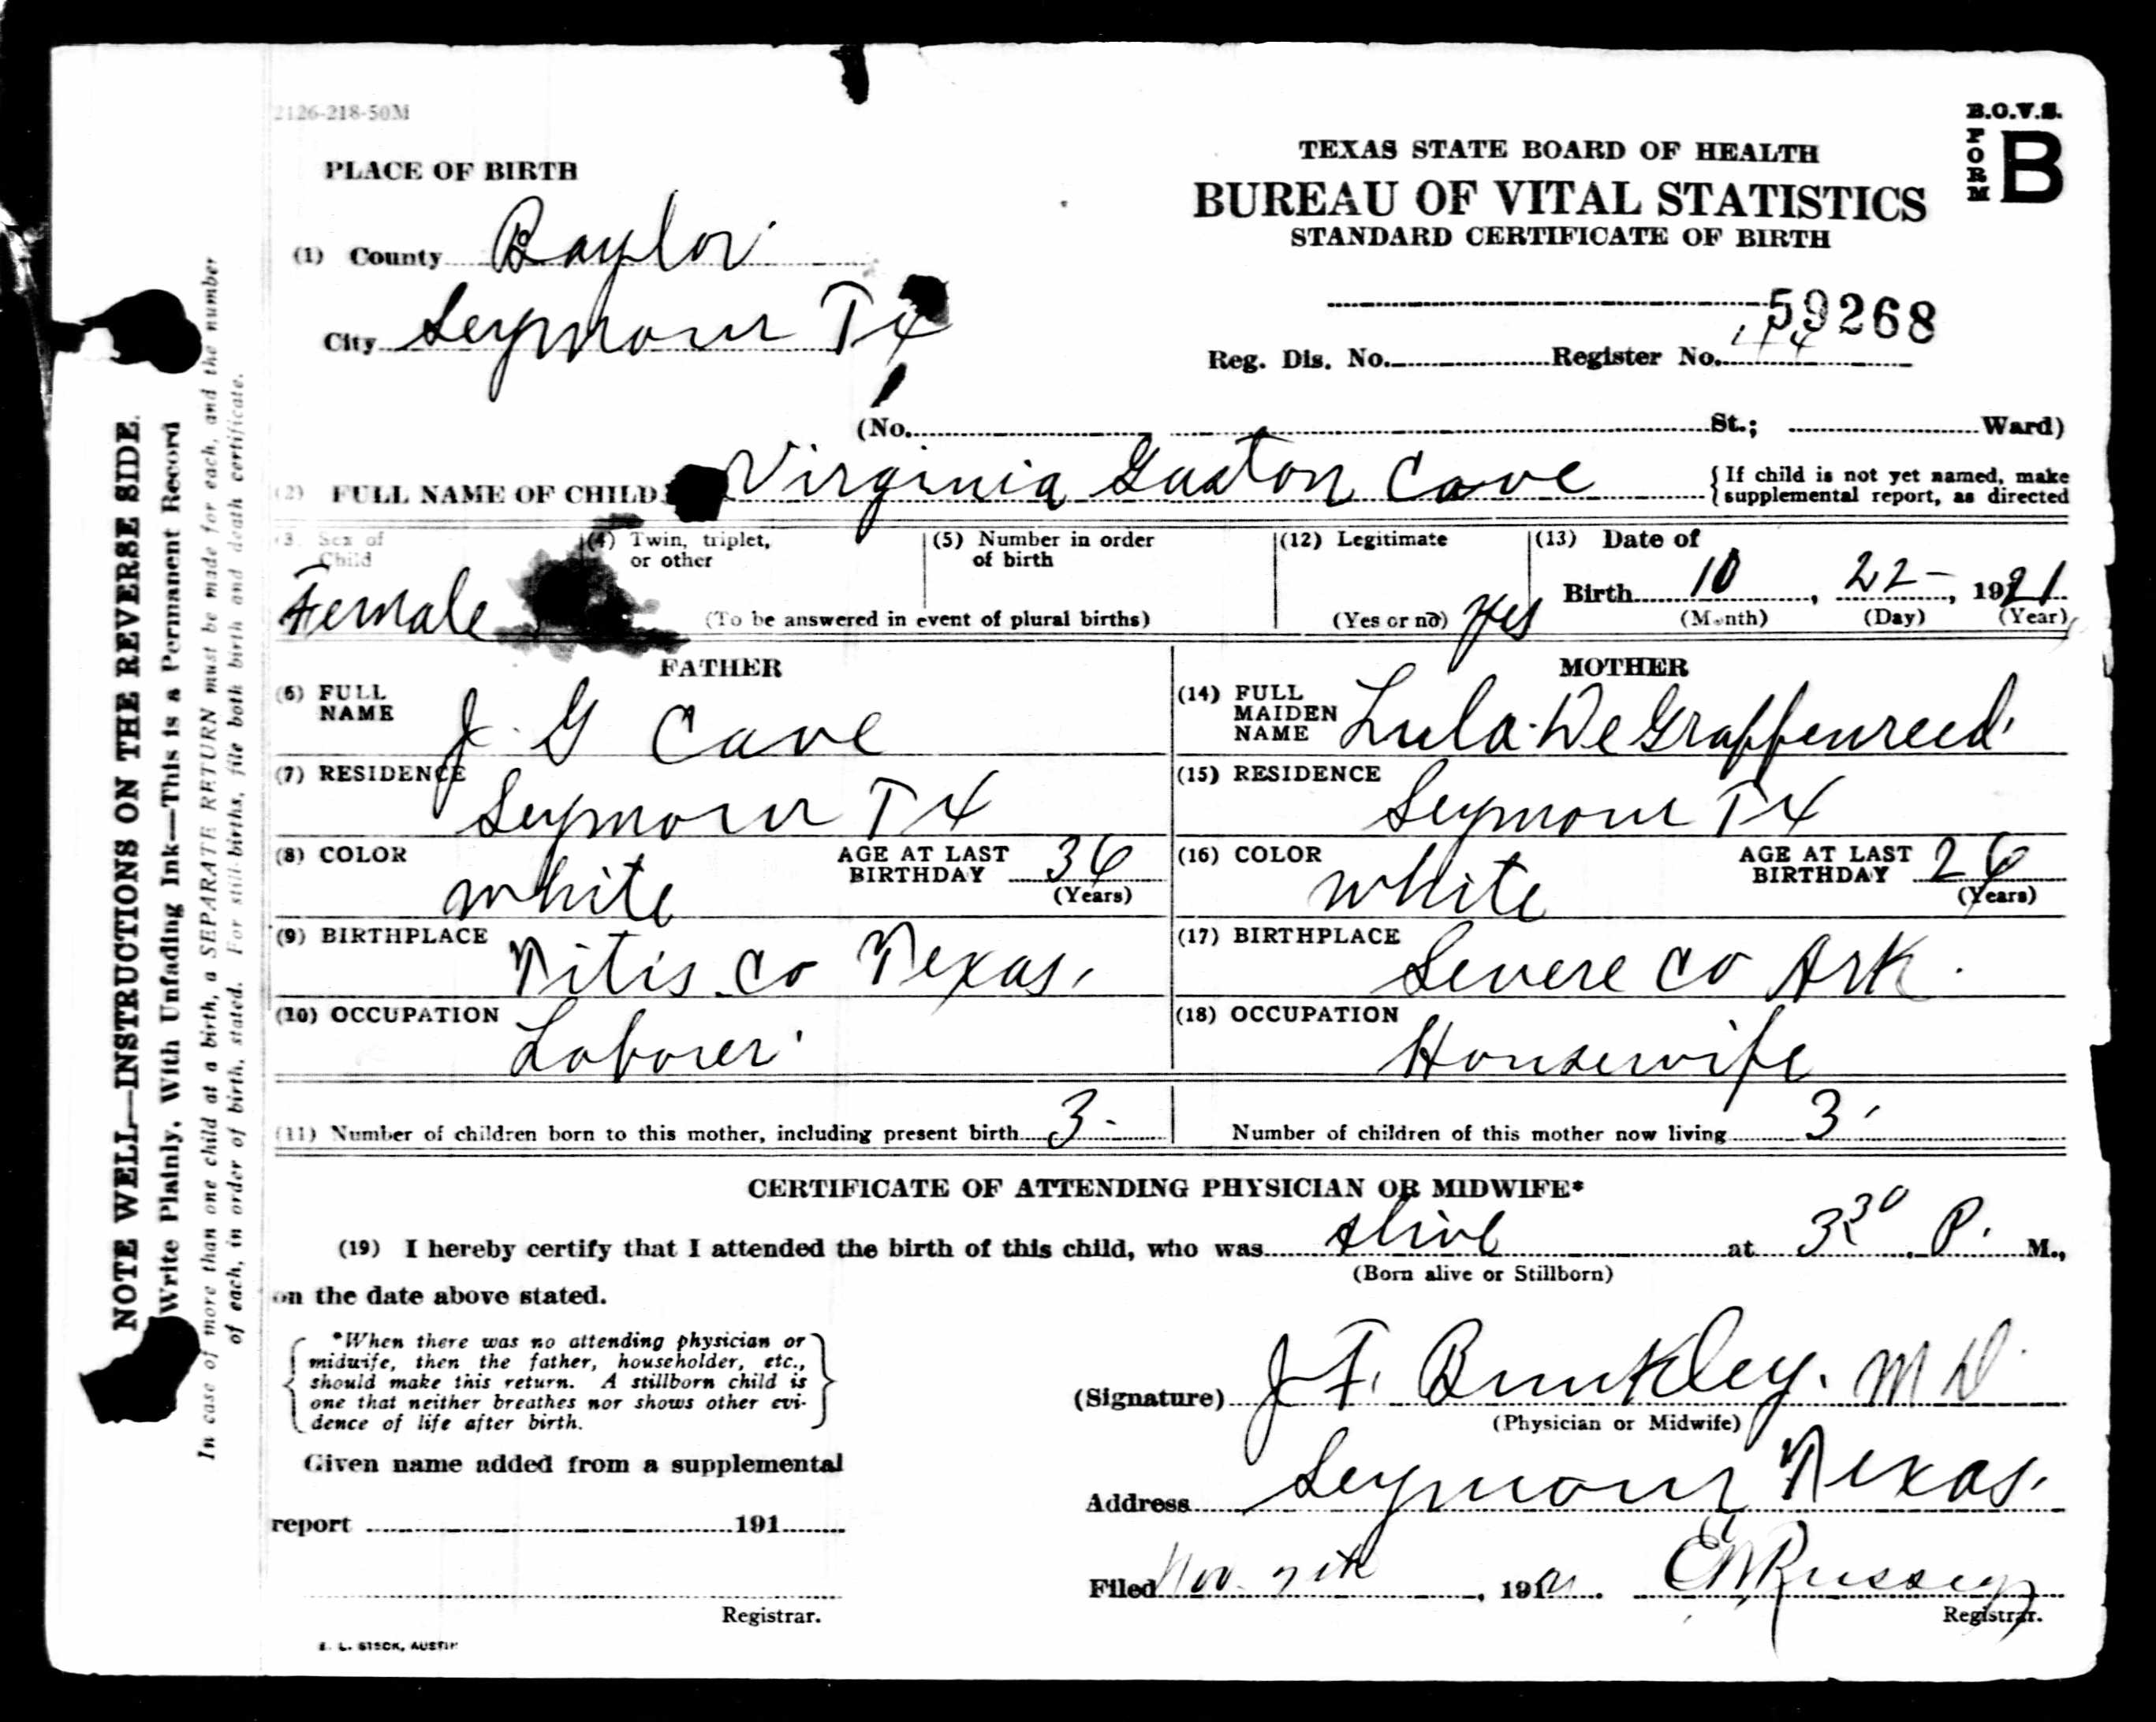 2126-218-50M
B.O.V.S.
FORM B
TEXAS STATE BOARD OF HEALTH
BUREAU OF VITAL STATISTICS
STANDARD CERTIFICATE OF BIRTH
PLACE OF BIRTH
(1) County Baylor
City Seymour Tx
59268
Reg. Dis. No. Register No.
(No. St.; Ward)
(2) FULL NAME OF CHILD Virginia Gaston Cave
If child is not yet named, make
supplemental report, as directed
3. Sex of Child Female
(4) Twin, triplet, or other
(5) Number in order of birth
(To be answered in event of plural births)
(12) Legitimate (Yes or no) yes
(13) Date of Birth 10, 22-, 1921
(Month) (Day) (Year)
FATHER
(6) FULL NAME J. G Cave
(7) RESIDENCE Seymour Tx
(8) COLOR white AGE AT LAST BIRTHDAY 36 (Years)
(9) BIRTHPLACE Titis Co Texas.
(10) OCCUPATION Laborer
MOTHER
(14) FULL MAIDEN NAME Lula De Graffenreed
(15) RESIDENCE Seymour Tx
(16) COLOR white AGE AT LAST BIRTHDAY 26 (Years)
(17) BIRTHPLACE Severe Co Ark.
(18) OCCUPATION Housewife
(11) Number of children born to this mother, including present birth 3- Number of children of this mother now living 3
CERTIFICATE OF ATTENDING PHYSICIAN OR MIDWIFE*
(19) I hereby certify that I attended the birth of this child, who was alive at 3 30 P. M.,
(Born alive or Stillborn)
on the date above stated.
*When there was no attending physician or
midwife, then the father, householder, etc.,
should make this return. A stillborn child is
one that neither breathes nor shows other evi-
dence of life after birth.
Given name added from a supplemental
report 191
Registrar.
E. L. STECK, AUSTIN
(Signature) J. F. Bunkley. M D.
(Physician or Midwife)
Address Seymour Texas.
Filed Nov. 191
Registrar.
NOTE WELL—INSTRUCTIONS ON THE REVERSE SIDE.
Write Plainly, With Unfading Ink—This is a Permanent Record
In case of more than one child at a birth, a SEPARATE RETURN must be made for each, and the number
of each, in order of birth, stated. For still-births, file both birth and death certificate.